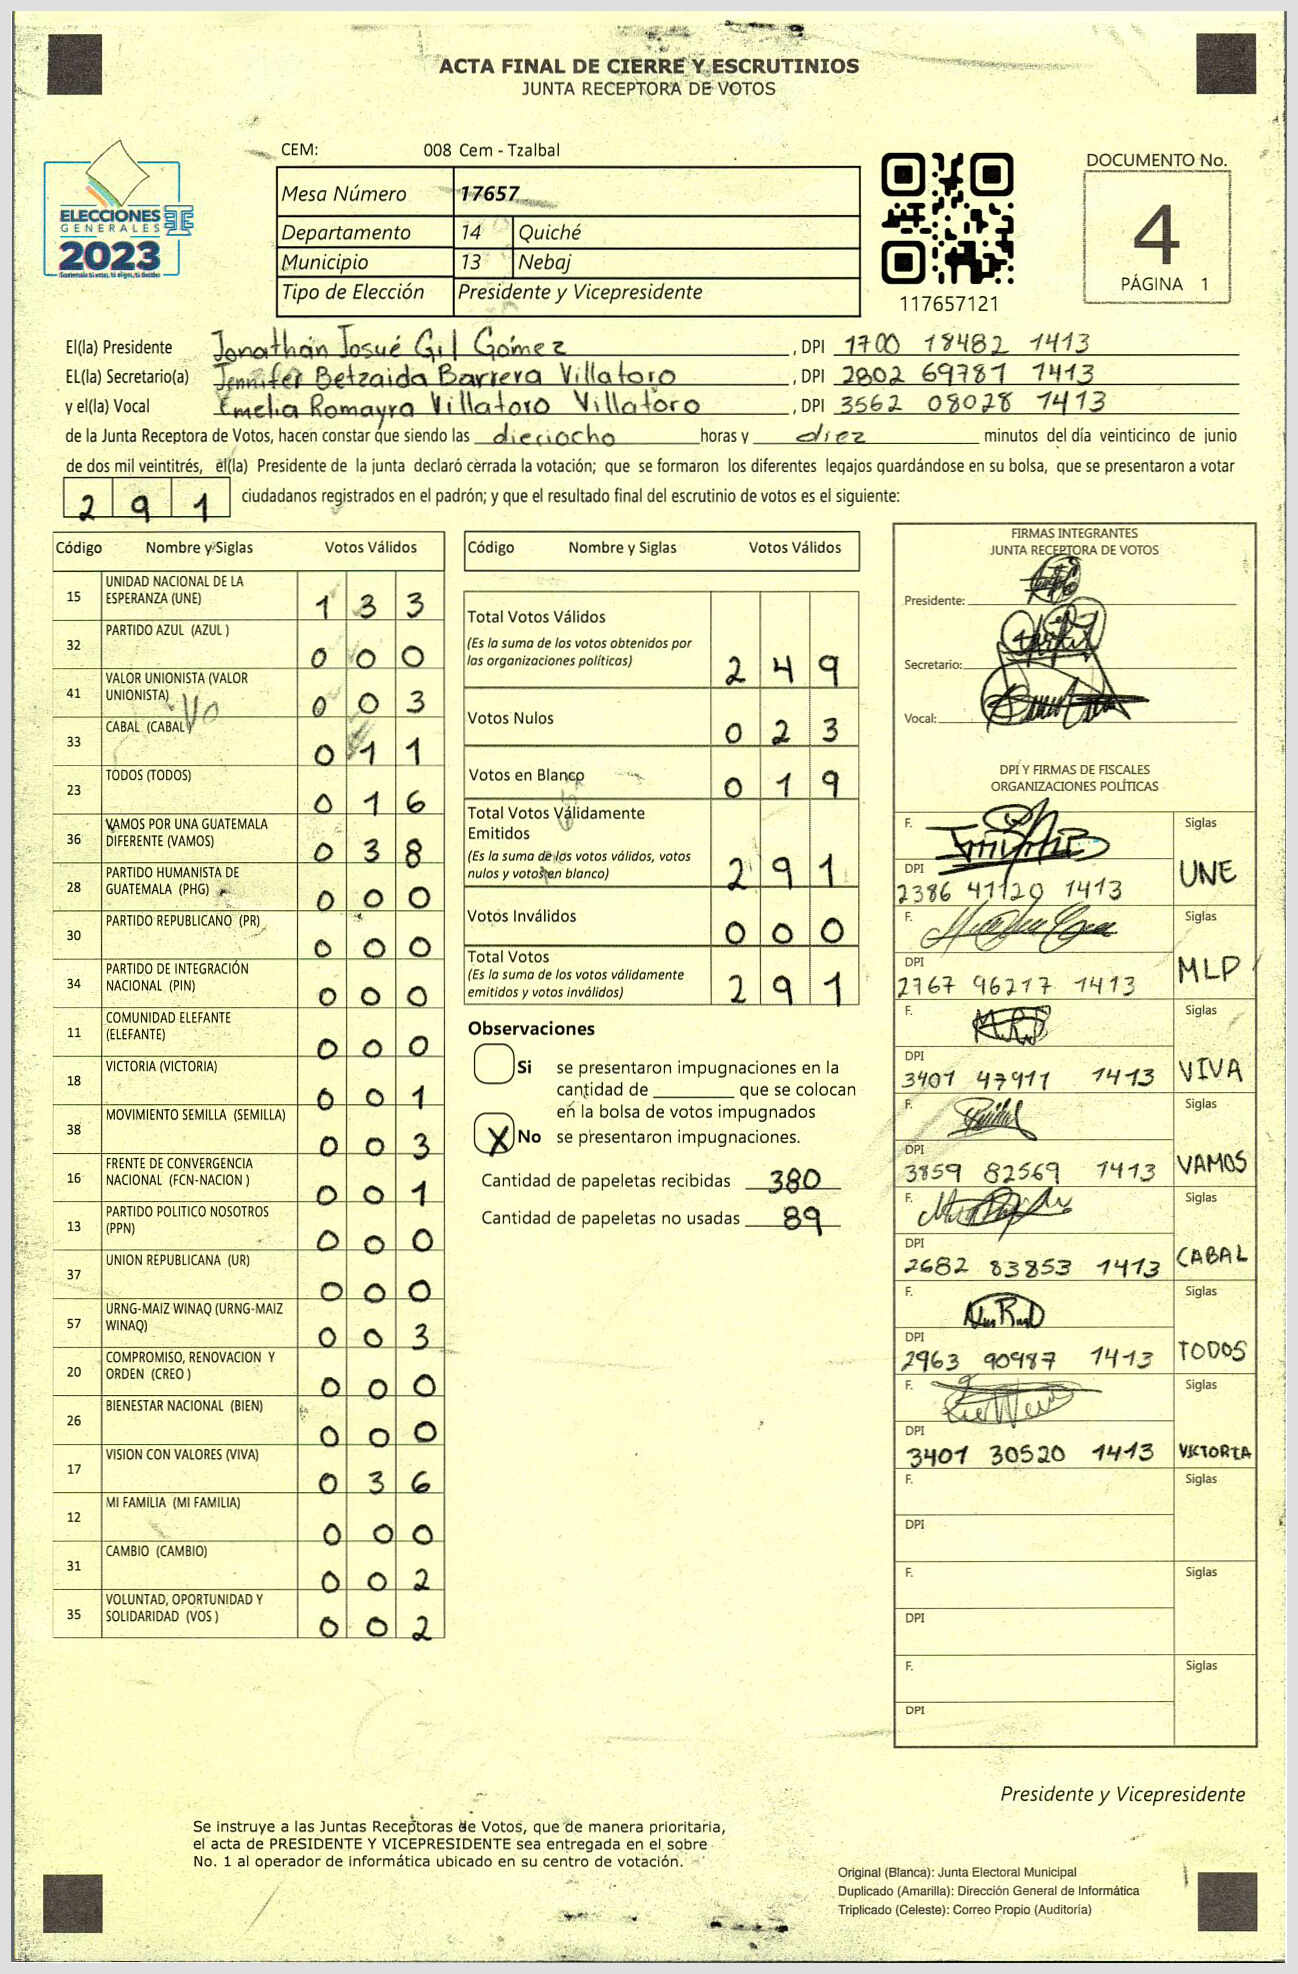 ACTA FINAL DE CIERRE Y ESCRUTINIOS
JUNTA RECEPTORA DE VOTOS
ELECCIONES
GENERALES
2023
CEM: 008 Cem - Tzalbal
Mesa Número 17657
Departamento 14 Quiché
Municipio 13 Nebaj
Tipo de Elección Presidente y Vicepresidente
117657121
DOCUMENTO No.
4
PÁGINA 1
El(la) Presidente Jonathan Josué Gil Gómez, DPI 1700 18482 1413
EL(la) Secretario(a) Jennifer Betzaida Barrera Villatoro, DPI 2802 69781 1413
y el(la) Vocal Emelia Romayra Villatoro Villatoro, DPI 3562 08028 1413
de la Junta Receptora de Votos, hacen constar que siendo las dieciocho horas y diez minutos del día veinticinco de junio
de dos mil veintitrés, el(la) Presidente de la junta declaró cerrada la votación; que se formaron los diferentes legajos guardándose en su bolsa, que se presentaron a votar
291 ciudadanos registrados en el padrón; y que el resultado final del escrutinio de votos es el siguiente:
Código Nombre y Siglas Votos Válidos
15 UNIDAD NACIONAL DE LA ESPERANZA (UNE) 133
32 PARTIDO AZUL (AZUL ) 000
41 VALOR UNIONISTA (VALOR UNIONISTA) 003
33 CABAL (CABAL) 011
23 TODOS (TODOS) 016
36 VAMOS POR UNA GUATEMALA DIFERENTE (VAMOS) 038
28 PARTIDO HUMANISTA DE GUATEMALA (PHG) 000
30 PARTIDO REPUBLICANO (PR) 000
34 PARTIDO DE INTEGRACIÓN NACIONAL (PIN) 000
11 COMUNIDAD ELEFANTE (ELEFANTE) 000
18 VICTORIA (VICTORIA) 001
38 MOVIMIENTO SEMILLA (SEMILLA) 003
16 FRENTE DE CONVERGENCIA NACIONAL (FCN-NACION ) 001
13 PARTIDO POLITICO NOSOTROS (PPN) 000
37 UNION REPUBLICANA (UR) 000
57 URNG-MAIZ WINAQ (URNG-MAIZ WINAQ) 003
20 COMPROMISO, RENOVACION Y ORDEN (CREO ) 000
26 BIENESTAR NACIONAL (BIEN) 000
17 VISION CON VALORES (VIVA) 036
12 MI FAMILIA (MI FAMILIA) 000
31 CAMBIO (CAMBIO) 002
35 VOLUNTAD, OPORTUNIDAD Y SOLIDARIDAD (VOS ) 002
Código Nombre y Siglas Votos Válidos
Total Votos Válidos
(Es la suma de los votos obtenidos por
las organizaciones políticas) 249
Votos Nulos 023
Votos en Blanco 019
Total Votos Válidamente
Emitidos
(Es la suma de los votos válidos, votos
nulos y votos en blanco) 291
Votos Inválidos 000
Total Votos
(Es la suma de los votos válidamente
emitidos y votos inválidos) 291
Observaciones
Si se presentaron impugnaciones en la
cantidad de ________ que se colocan
en la bolsa de votos impugnados
X No se presentaron impugnaciones.
Cantidad de papeletas recibidas 380
Cantidad de papeletas no usadas 89
FIRMAS INTEGRANTES
JUNTA RECEPTORA DE VOTOS
Presidente:
Secretario:
Vocal:
DPI Y FIRMAS DE FISCALES
ORGANIZACIONES POLÍTICAS
F. Siglas
DPI
2386 41120 1413 UNE
F. Siglas
DPI
2767 96217 1413 MLP
F. Siglas
DPI
3401 47911 1413 VIVA
F. Siglas
DPI
3859 82569 1413 VAMOS
F. Siglas
DPI
2682 83853 1413 CABAL
F. Siglas
DPI
2963 90987 1413 TODOS
F. Siglas
DPI
3401 30520 1413 VICTORIA
F. Siglas
DPI
F. Siglas
DPI
F. Siglas
DPI
Presidente y Vicepresidente
Se instruye a las Juntas Receptoras de Votos, que de manera prioritaria,
el acta de PRESIDENTE Y VICEPRESIDENTE sea entregada en el sobre
No. 1 al operador de informática ubicado en su centro de votación.
Original (Blanca): Junta Electoral Municipal
Duplicado (Amarilla): Dirección General de Informática
Triplicado (Celeste): Correo Propio (Auditoría)